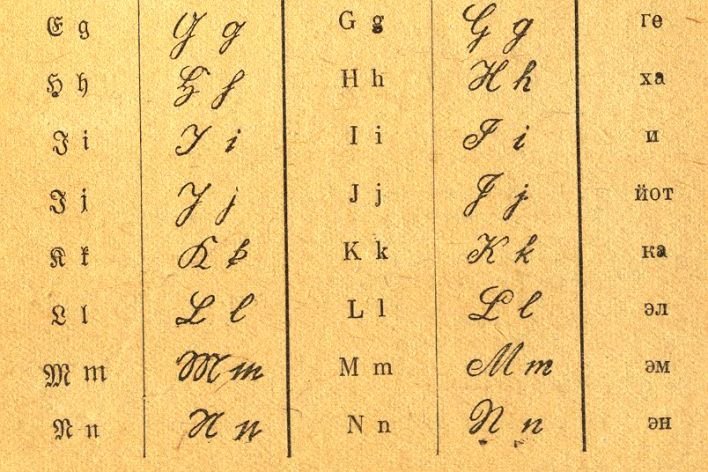 G g G g G g G g ге
H h H h H h H h ха
I i I i I i I i и
J j J j J j J j йот
K k K k K k K k ка
L l L l L l L l эл
M m M m M m M m эм
N n N n N n N n эн